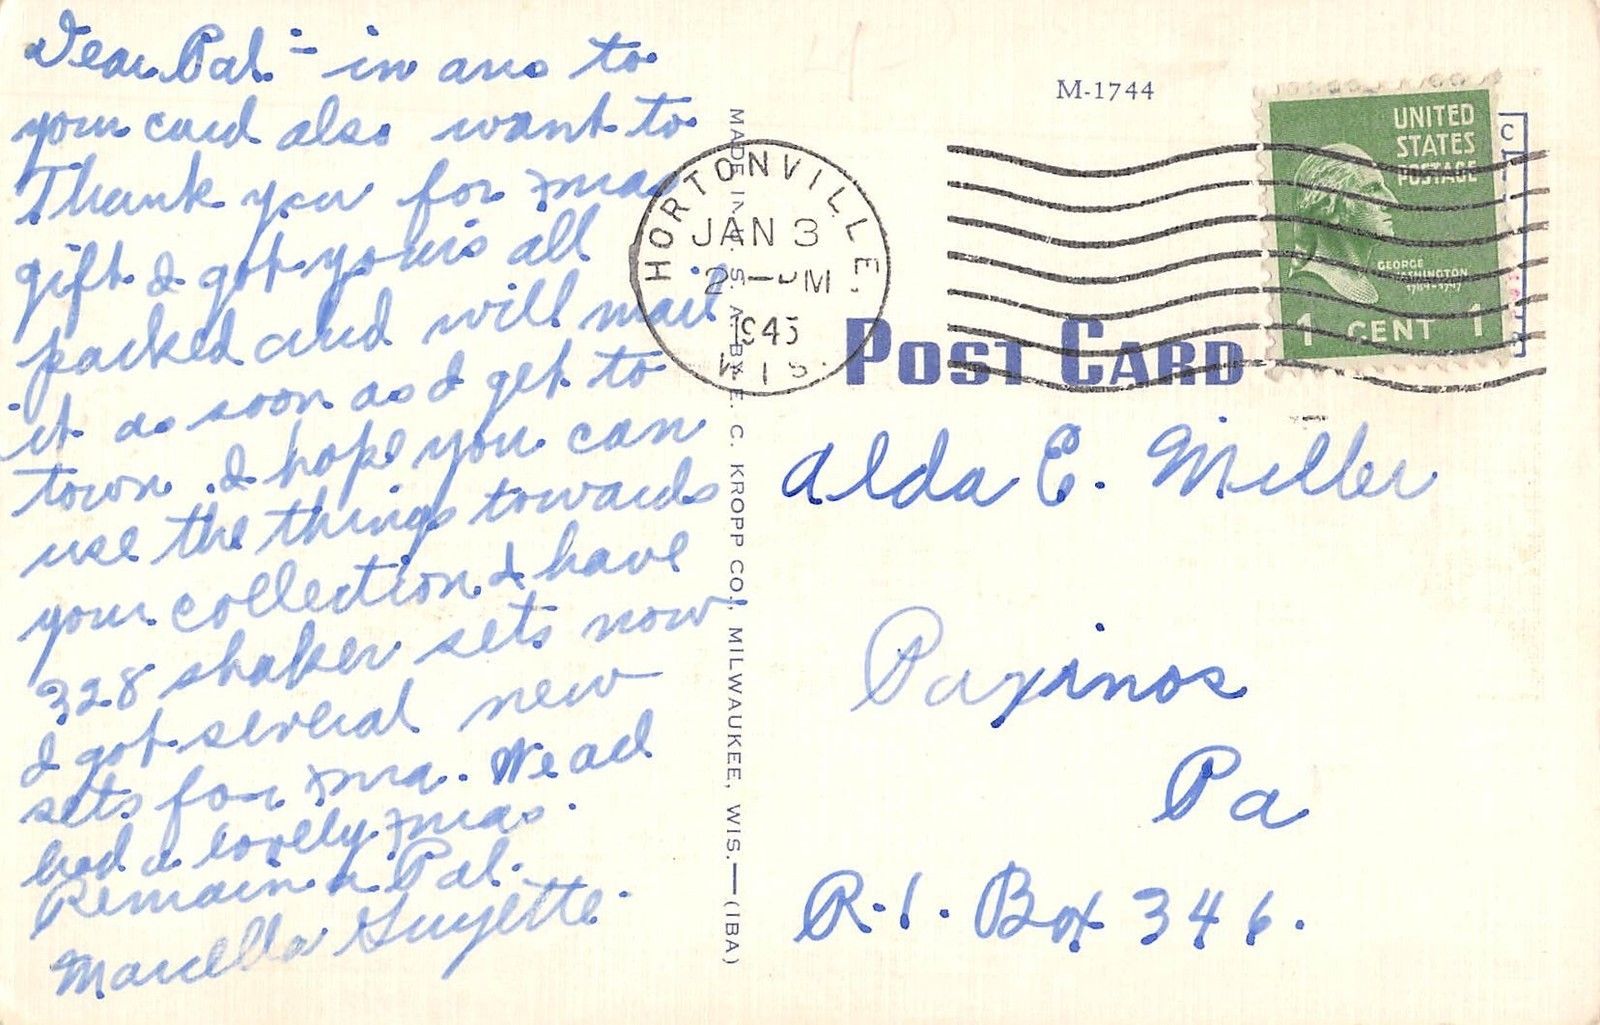 Dear Pal :- in ans to
your card also want to
Thank you for xmas
gift I got yours all
packed and will mail
it as soon as I get to
town. I hope you can
use the things towards
your collection I have
328 shaker sets now
I got several new
sets for xma. We all
had a lovely xmas.
Remain a Pal.
Marcella Guyette.
MADE IN U. S. A. BY E. C. KROPP CO., MILWAUKEE, WIS.—(IBA)
M-1744
HORTONVILLE,
JAN 3
2 - PM
1945
WIS.
UNITED
STATES
POSTAGE
GEORGE
WASHINGTON
1 CENT 1
C
POST CARD
Alda E. Miller
Paxinos
Pa
R.1. Box 346.